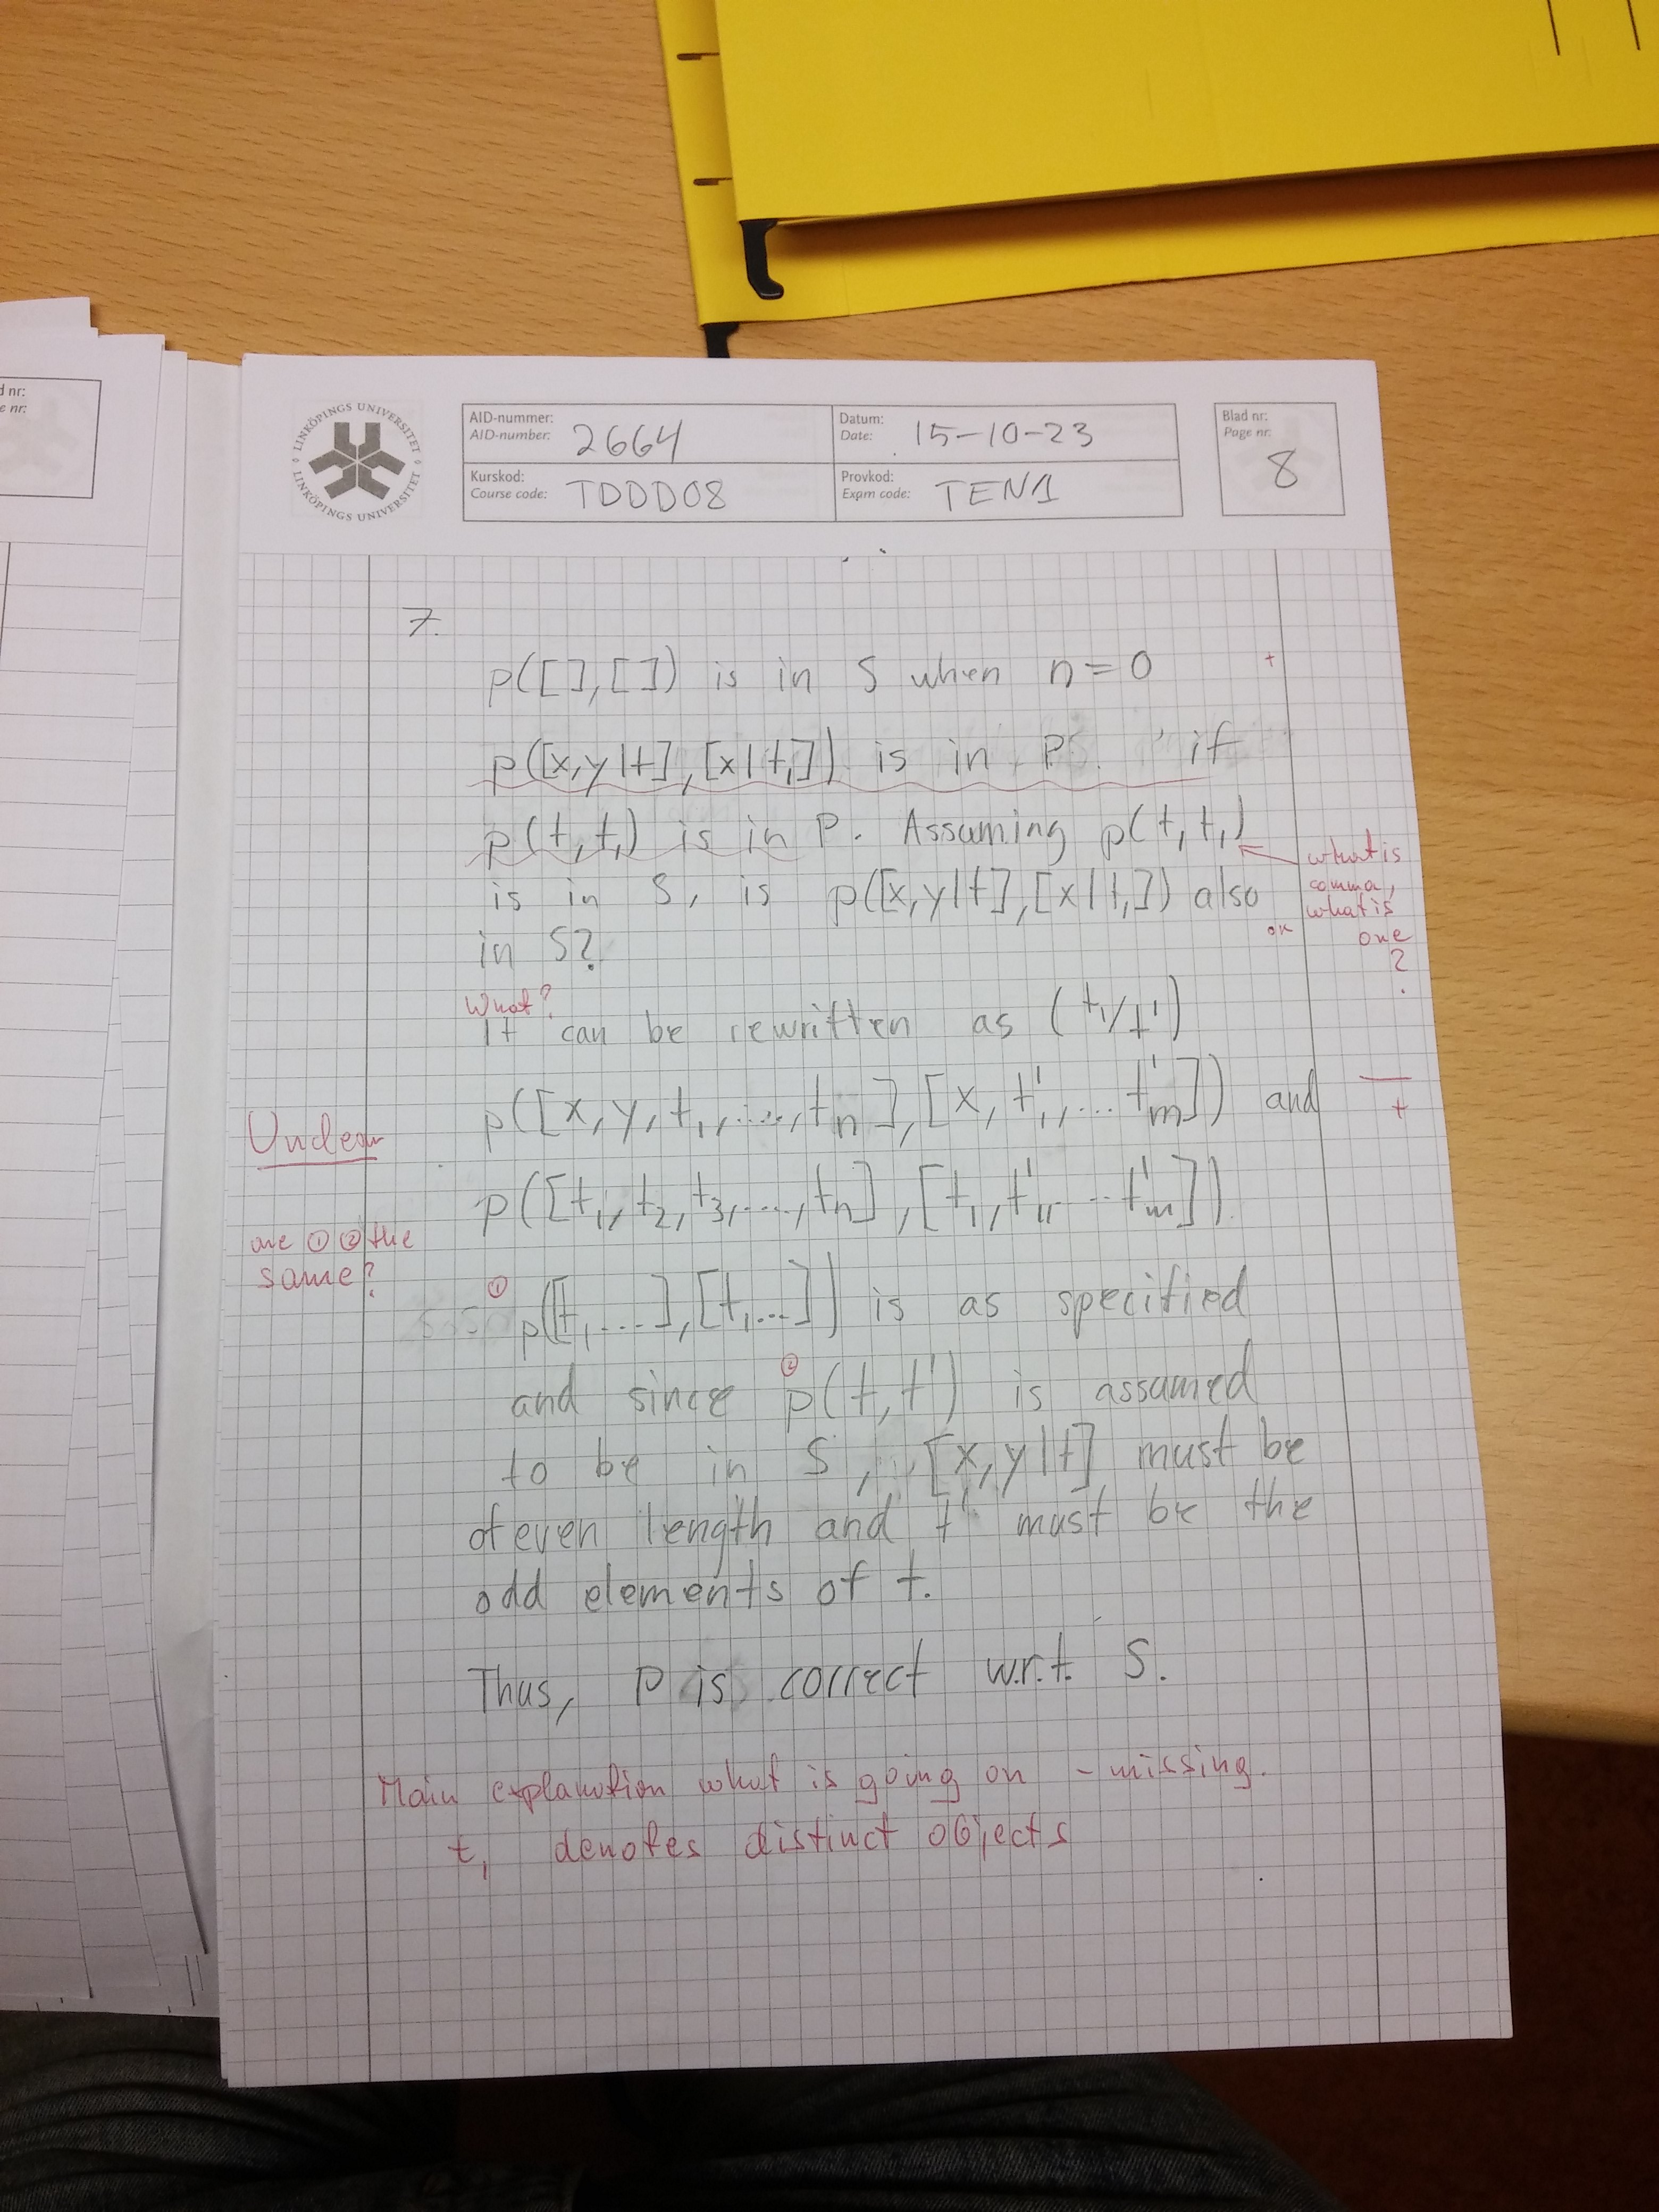 d nr:
e nr:
LINKÖPINGS UNIVERSITET
LINKÖPINGS UNIVERSITET
AID-nummer:
AID-number: 2664
Datum:
Date: 15-10-23
Blad nr:
Page nr:
8
Kurskod:
Course code: TDDD08
Provkod:
Exam code: TEN1
7.
p([],[]) is in S when n=0 +
p([x,y|t],[x|t₁]) is in P if
p(t,t₁) is in P. Assuming p(t,t₁)
is in S, is p([x,y|t],[x|t₁]) also
in S?
what is
comma,
what is
one
?
ok
What?
It can be rewritten as (t₁/t')
p([x,y,t₁,...,tn],[x,t'₁,...t'm]) and
+
Unclear
p([t₁,t₂,t₃,...,tn],[t₁,t'₁,...t'm]).
are ① ② the
same?
①
p([t,...],[t,...]) is as specified
②
and since p(t,t') is assumed
to be in S, [x,y|t] must be
of even length and t' must be the
odd elements of t.
Thus, P is correct w.r.t. S.
Main explanation what is going on - missing.
t₁ denotes distinct objects